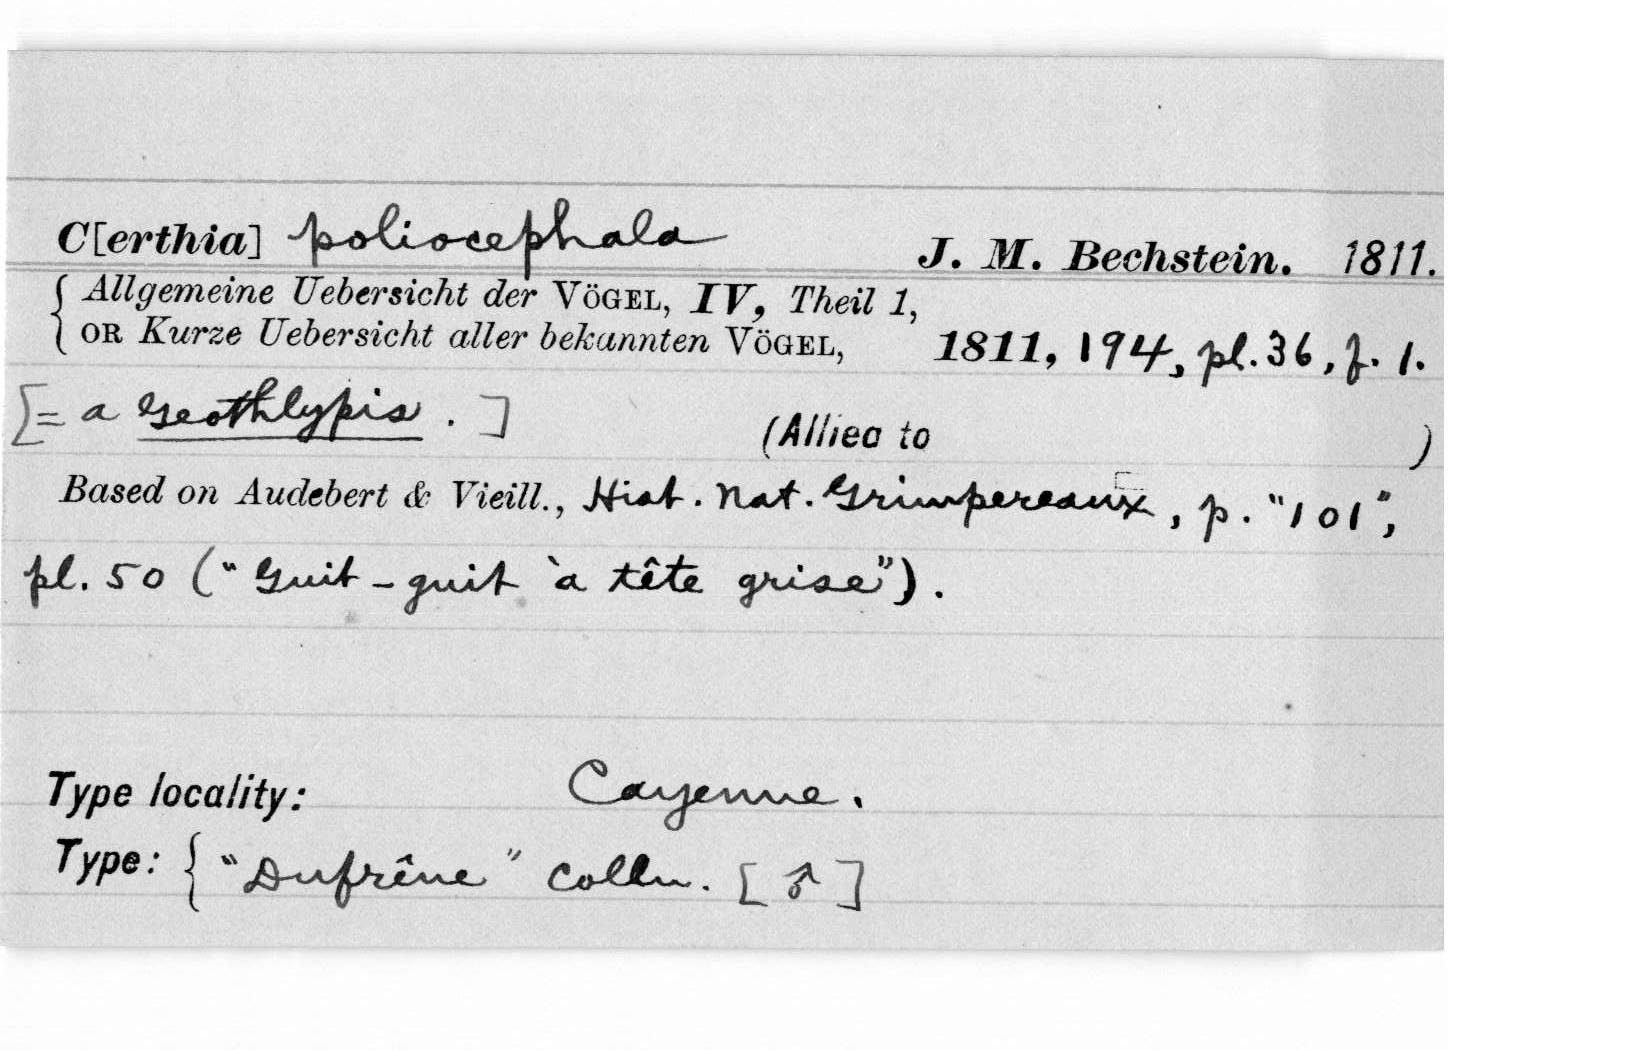 C[erthia] poliocephala J. M. Bechstein. 1811.
{ Allgemeine Uebersicht der VÖGEL, IV, Theil 1,
OR Kurze Uebersicht aller bekannten VÖGEL, 1811, 194, pl. 36, f. 1.
[= a Geothlypis . ] (Allied to )
Based on Audebert & Vieill., Hist. Nat. Grimpereaux, p. "101",
pl. 50 ("Guit-guit à tête grise").
Type locality: Cayenne.
Type: { "Dufrêne" Colln. [♂]